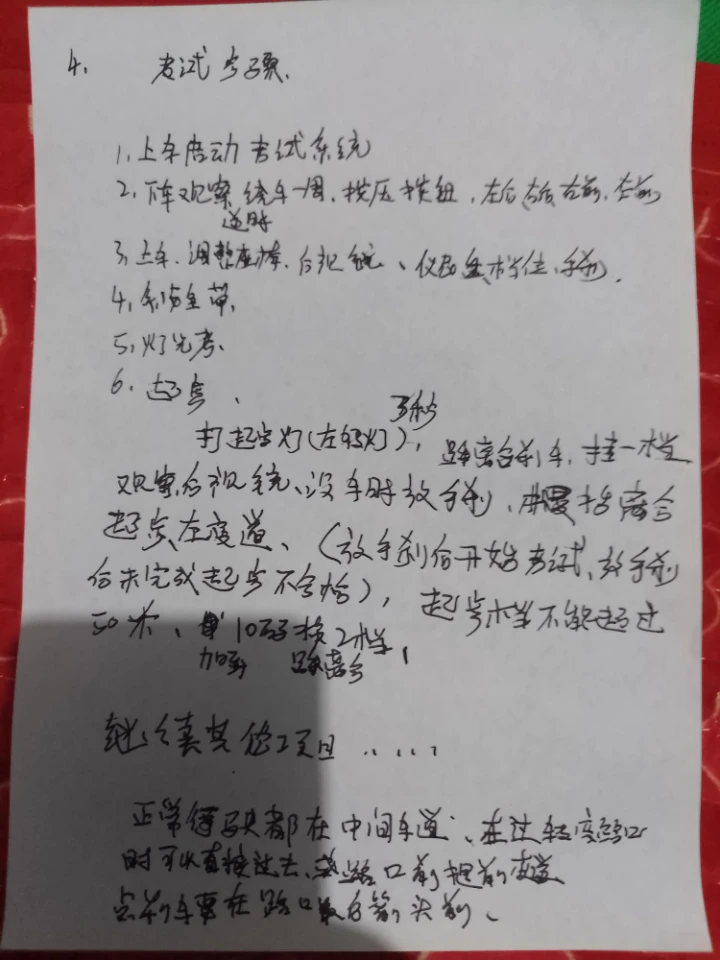 4. 考试步骤.
1, 上车启动考试系统
2. 下车观察绕车一周, 按压按钮, 左后右后右前, 左前
逆时
3, 上车, 调整座椅, 后视镜、仪表盘, 档位, 手刹.
4, 系安全带,
5, 灯光考.
6. 起步、
3秒
打起步灯(左转灯), 踩离合刹车, 挂一档
观察后视镜、没车时放手刹, 慢抬离合
起步左变道、(放手刹后开始考试、放手刹
后未完成起步不合格), 起步1档不能超过
50米、到10码换2档,
加到 踩离合
继续其他项目.....
正常行驶都在中间车道、在过路口
时可以直接过去、路口前提前变道
点刹车要在路口最后箭头前、